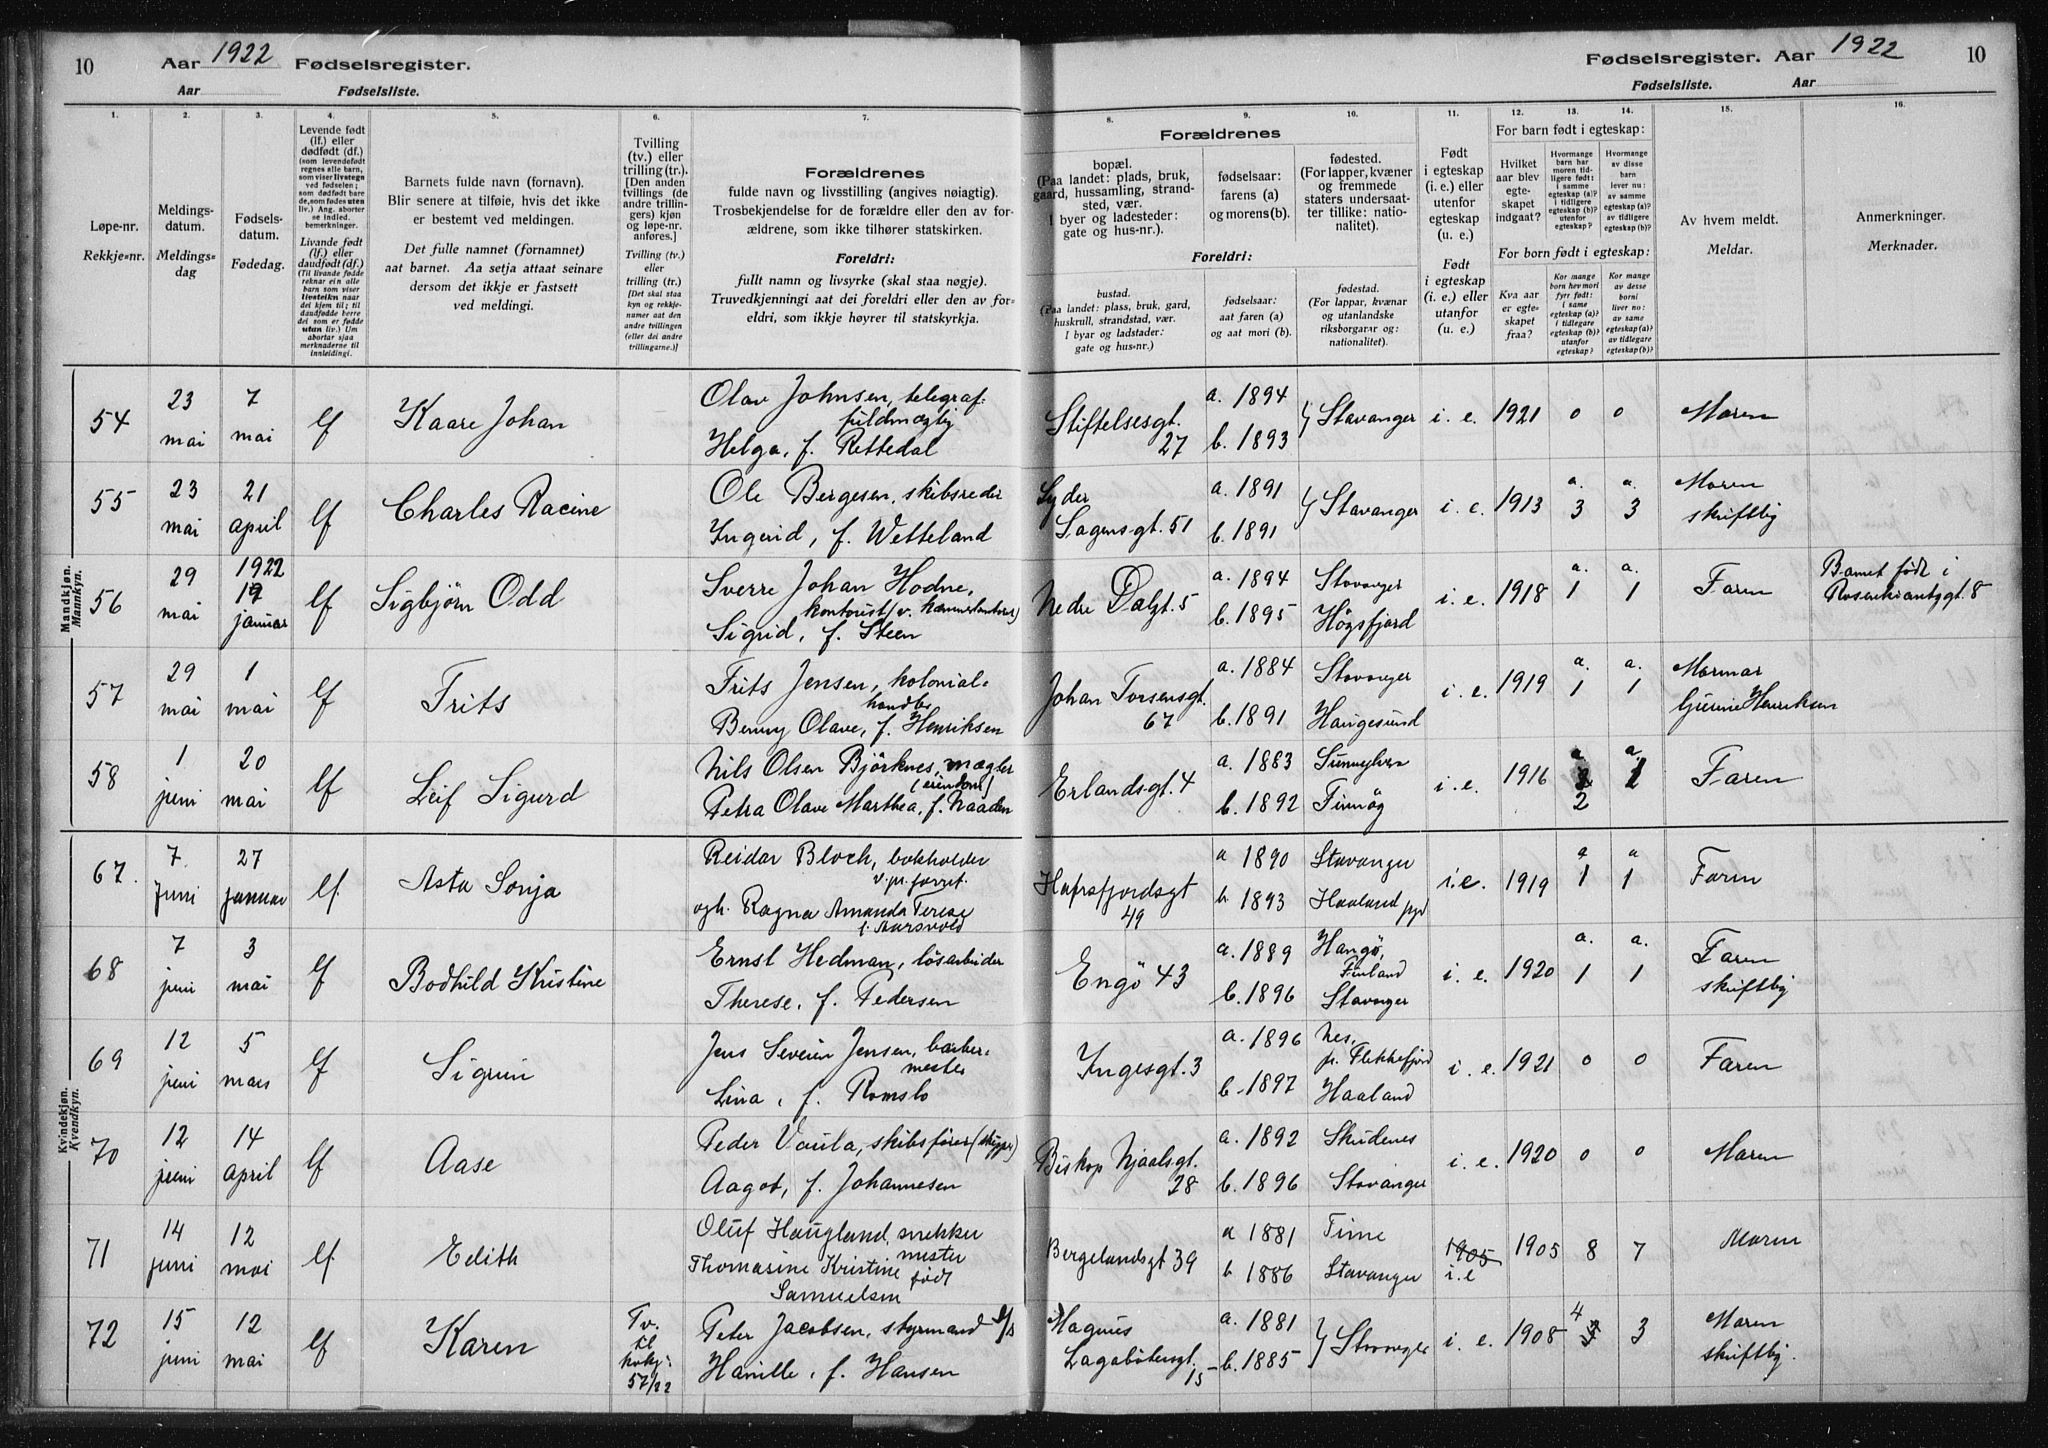 10 Aar 1922 Fødselsregister.
Aar Fødselsliste.
Fødselsregister. Aar 1922 10
Fødselsliste. Aar
1. 2. 3. 4. 5. 6. 7. 8. 9. 10. 11. 12. 13. 14. 15. 16.
Løpe-nr.
Rekkje=nr.
Meldings-
datum.
Meldings=
dag
Fødsels-
datum.
Fødedag.
Levende født
(lf.) eller
dødfødt (df.)
(som levendefødt
regnes alle barn,
som viser livstegn
ved fødselen;
som dødfødt bare
de, som fødes uten
liv.) Ang. aborter
se indled.
bemerkninger.
Livande født
(lf.) eller
daudfødt (df.)
(Til livande fødde
reknar ein alle
barn som viser
livsteikn naar
dei kjem til; til
daudfødde berre
dei som er fødde
utan liv.) Um
abortar sjaa
merknaderne til
innleidingi.
Barnets fulde navn (fornavn).
Blir senere at tilføie, hvis det ikke
er bestemt ved meldingen.
Det fulle namnet (fornamnet)
aat barnet. Aa setja attaat seinare
dersom det ikkje er fastsett
ved meldingi.
Tvilling
(tv.) eller
trilling (tr.).
[Den anden
tvillings (de
andre tril-
lingers) kjøn
og løpe-nr.
anføres.]
Tvilling (tv.)
eller
trilling (tr.)
[Det skal staa
kyn og rekkje-
numer aat den
andre tvillingen
(eller dei andre
trillingarne.)]
Forældrenes
fulde navn og livsstilling (angives nøiagtig).
Trosbekjendelse for de forældre eller den av for-
ældrene, som ikke tilhører statskirken.
Foreldri:
fullt namn og livsyrke (skal staa nøgje).
Truvedkjenningi aat dei foreldri eller den av for-
eldri, som ikkje høyrer til statskyrkja.
Forældrenes
bopæl.
(Paa landet: plads, bruk,
gaard, hussamling, strand-
sted, vær.
I byer og ladesteder:
gate og hus-nr.).
fødselsaar:
farens (a)
og morens (b).
fødested.
(For lapper, kvæner
og fremmede
staters undersaat-
ter tillike: natio-
nalitet).
Foreldri:
bustad.
(Paa landet: plass, bruk, gard,
huskrull, strandstad, vær.
I byar og ladstader:
gate og hus-nr.)
fødselsaar:
aat faren (a)
og aat mori (b).
fødestad.
(For lappar, kvænar
og utanlandske
riksborgarar og:
nationalitet).
Født
i egteskap
(i. e.) eller
utenfor
egteskap
(u. e.)
Født
i egteskap
(i. e.) eller
utanfor
(u. e.)
For barn født i egteskap:
Hvilket
aar blev
egte-
skapet
indgaat?
Hvormange
barn har
moren tid-
ligere født:
i samme
egteskap (a)?
i tidligere
egteskap (b)?
utenfor
egteskap?
Hvormange
av disse
barn
lever nu:
av samme
egteskap (a)?
av tidligere
egteskap (b)?
For born født i egteskap:
Kva aar
er egte-
skapet
fraa?
Kor mange
born hev mori
fyrr født:
i same
egteskap (a)?
i tidlegare
egteskap (b)?
utanfor
egteskap?
Kor mange
av desse
borni
liver no:
av same
egteskap (a)?
av tidlegare
egteskap (b)?
Av hvem meldt.
Meldar.
Anmerkninger.
Merknader.
Mandkjøn.
Mannkyn.
54 23 mai 7 mai lf Kaare Johan
Olav Johnsen, telegraf-
fuldmægtig
Helga, f. Rettedal
Stiftelsesgt. 27 a. 1894 b. 1893 Stavanger i. e. 1921 0 0 Moren
55 23 mai 21 april lf Charles Racine
Ole Bergesen, skibsreder
Ingerid, f. Wetteland
Syder Sagensgt. 51 a. 1891 b. 1891 Stavanger i. e. 1913 a. 3 a. 3 Moren skriftlig
56 29 mai 1922 19 januar lf Sigbjørn Odd
Sverre Johan Hodne,
Sigrid, f. Steen
Nedre Dalgt. 5 a. 1894 b. 1895 Stavanger Högsfjord i. e. 1918 a. 1 a. 1 Faren
Barnet født i
Rosenkrantzgt. 8
57 29 mai 1 mai lf Frits
Frits Jensen, kolonial-
handler
Benny Olave, f. Henriksen
Johan Torsensgt. 67 a. 1884 b. 1891 Stavanger Haugesund i. e. 1919 a. 1 a. 1 Mormor Henriksen
58 1 juni 20 mai lf Leif Sigurd
Nils Olsen Björknes, mægler
(eiendom)
Petra Olave Marthea, f. Naaden
Erlandsgt. 4 a. 1883 b. 1892 Finnöy i. e. 1916 a 2 a. 1 Faren
Kvindekjøn.
Kvendkyn.
67. 7 juni 27 januar lf. Asta Sonja
Reidar Bloch, bokholder
v. pr. forret.
ogh. Ragna Amanda Terese
f. Aarsvold
Hafrsfjordsgt 49 a 1890 b 1893 Stavanger Haaland pgd i. e. 1919 a 1 a 1 Faren
68 7 juni 3 mai lf Bodhild Kristine
Ernst Hedman, løsarbeider
Therese, f. Pedersen
Engö 43 a. 1889 b. 1896 Hangö, Finland Stavanger i. e. 1920 a. 1 a. 1 Faren skriftlig
69 12 juni 5 mars lf Sigrun
Jens Severin Jensen, barber-
mester
Lina, f. Romslo
Ingesgt. 3 a. 1896 b. 1897 Nes, pr. Flekkefjord Haaland i. e. 1921 0 0 Faren
70 12 juni 14 april lf Aase
Peder Vaula, skibsfører (skipper)
Aagot, f. Johannesen
Biskop Njaalsgt. 28 a. 1892 b. 1896 Skudenes Stavanger i. e. 1920 0 0 Moren
71 14 juni 12 mai lf Edith
Oluf Haugland, snekker
mester
Thomasine Kristine født
Samuelsen
Bergelandsgt 39 a 1881 b 1886 Time Stavanger 1905 i. e 1905 8 7 Moren
72 15 juni 12 mai lf Karen Tv. til 57/22
Peter Jacobsen, styrmand
Hanille, f. Hansen
Magnus Lagabötersgt. 15 a. 1881 b. 1885 Stavanger i. e. 1908 4 3 Moren skriftlig.